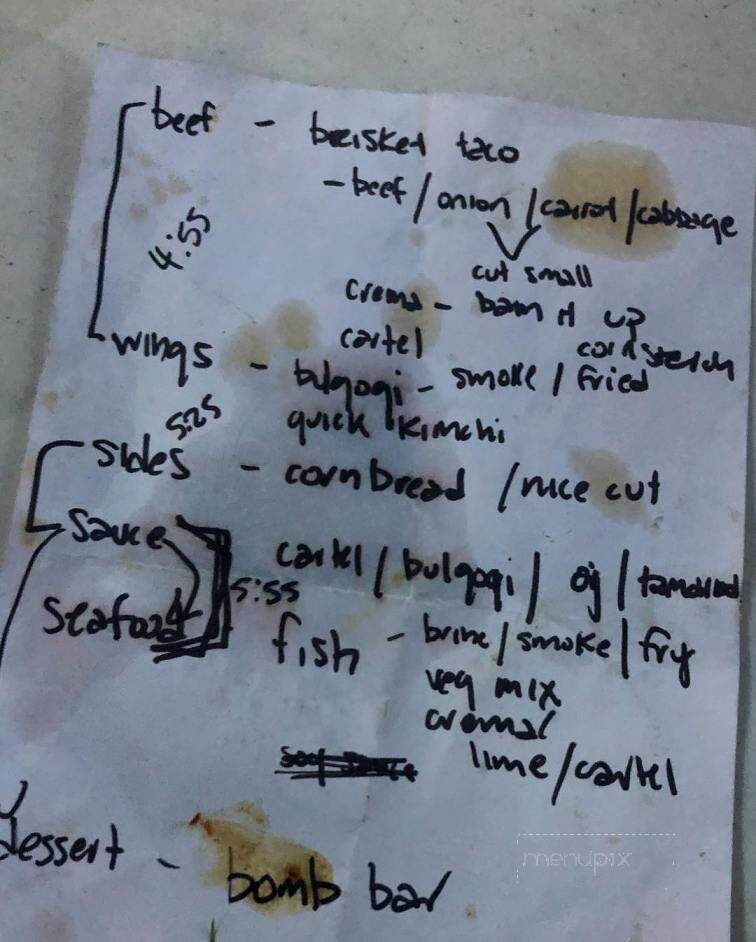 beef - brisket taco
- beef / onion / carrot / cabbage
cut small
4:55
crema - bam it up
cartel cornsterch
wings - bulgogi - smoke / fried
5:25
quick kimchi
sides - cornbread / nice cut
sauce cartel / bulgogi / og / tamarind
5:55
seafood fish - brine / smoke / fry
veg mix
crema
lime / cartel
dessert - bomb bar
menupix